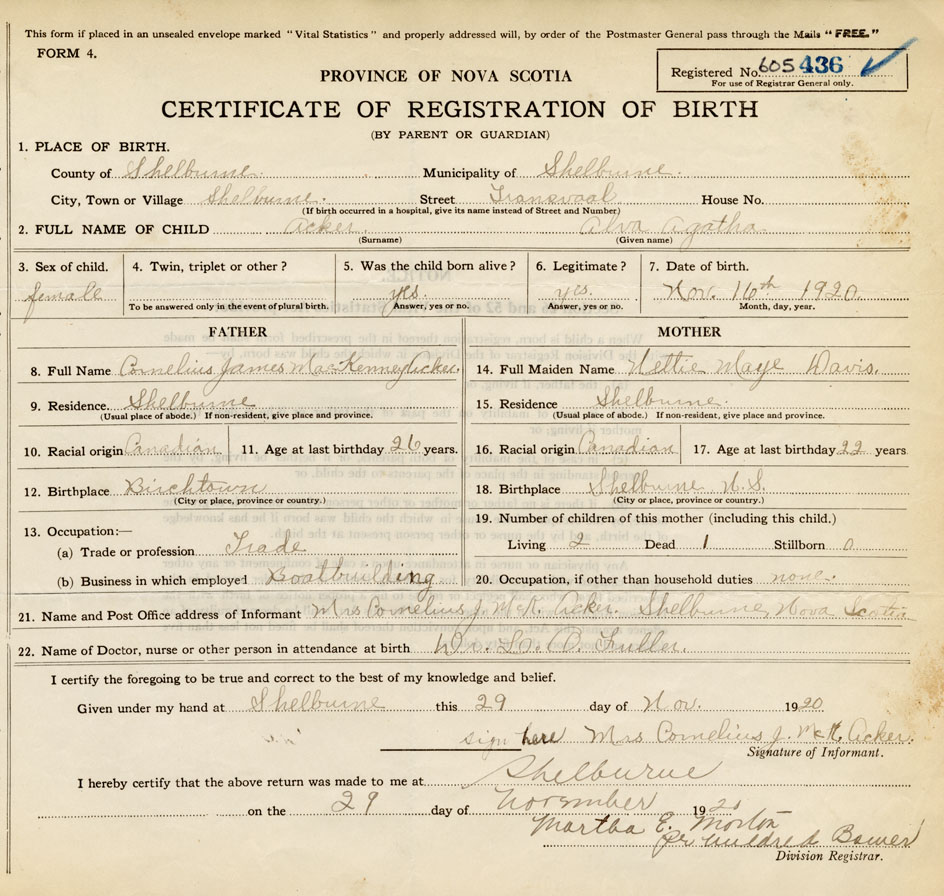 This form if placed in an unsealed envelope marked "Vital Statistics" and properly addressed will, by order of the Postmaster General pass through the Mails "FREE."
FORM 4.
PROVINCE OF NOVA SCOTIA
Registered No. 605436
For use of Registrar General only.
CERTIFICATE OF REGISTRATION OF BIRTH
(BY PARENT OR GUARDIAN)
1. PLACE OF BIRTH.
County of Shelburne. Municipality of Shelburne.
City, Town or Village Shelburne. Street Transvaal House No.
(If birth occurred in a hospital, give its name instead of Street and Number)
2. FULL NAME OF CHILD Acker. Alva Agatha.
(Surname) (Given name)
3. Sex of child. 4. Twin, triplet or other? 5. Was the child born alive? 6. Legitimate? 7. Date of birth.
female yes. yes. Nov. 16th 1920.
To be answered only in the event of plural birth. Answer, yes or no. Answer, yes or no. Month, day, year.
FATHER MOTHER
8. Full Name Cornelius James MacKenney Acker. 14. Full Maiden Name Nettie Maye Davis.
9. Residence. Shelburne 15. Residence Shelburne.
(Usual place of abode.) If non-resident, give place and province. (Usual place of abode.) If non-resident, give place and province.
10. Racial origin Canadian 11. Age at last birthday 26 years. 16. Racial origin Canadian 17. Age at last birthday 22 years
12. Birthplace Birchtown 18. Birthplace Shelburne N.S.
(City or place, province or country.) (City or place, province or country.)
13. Occupation:— 19. Number of children of this mother (including this child.)
(a) Trade or profession Trade Living 2 Dead 1 Stillborn 0
(b) Business in which employed Boatbuilding 20. Occupation, if other than household duties none.
21. Name and Post Office address of Informant Mrs Cornelius J. McK. Acker. Shelburne, Nova Scotia
22. Name of Doctor, nurse or other person in attendance at birth Dr. L. O. Fuller.
I certify the foregoing to be true and correct to the best of my knowledge and belief.
Given under my hand at Shelburne this 29 day of Nov. 1920
sign here Mrs Cornelius J. McK. Acker.
Signature of Informant.
I hereby certify that the above return was made to me at Shelburne
on the 29 day of November 1920
Martha E. Morton
per Mildred Bower
Division Registrar.